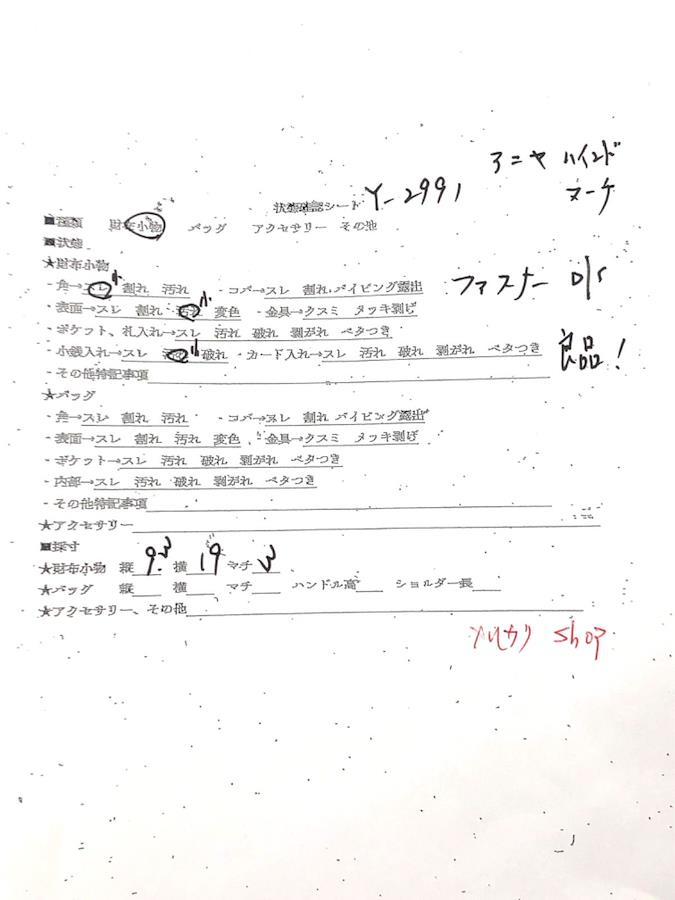 アニヤ ハインド
マーチ
状態確認シート Y-2991
■種類 財布小物 バッグ アクセサリー その他
■状態
★財布小物
・角→スレ 小 割れ 汚れ ・コバ→スレ 割れ パイピング露出
ファスナー OK
・表面→スレ 割れ 汚れ 小 変色 ・金具→クスミ メッキ剥げ
・ポケット、札入れ→スレ 汚れ 破れ 剥がれ ベタつき
良品!
・小銭入れ→スレ 汚れ 小 破れ ・カード入れ→スレ 汚れ 破れ 剥がれ ベタつき
・その他特記事項
★バッグ
・角→スレ 割れ 汚れ ・コバ→スレ 割れ パイピング露出
・表面→スレ 割れ 汚れ 変色 ・金具→クスミ メッキ剥げ
・ポケット→スレ 汚れ 破れ 剥がれ ベタつき
・内部→スレ 汚れ 破れ 剥がれ ベタつき
・その他特記事項
★アクセサリー
■採寸
★財布小物 縦 9.3 横 19 マチ 3
★バッグ 縦 横 マチ ハンドル高 ショルダー長
★アクセサリー、その他
メルカリ shop